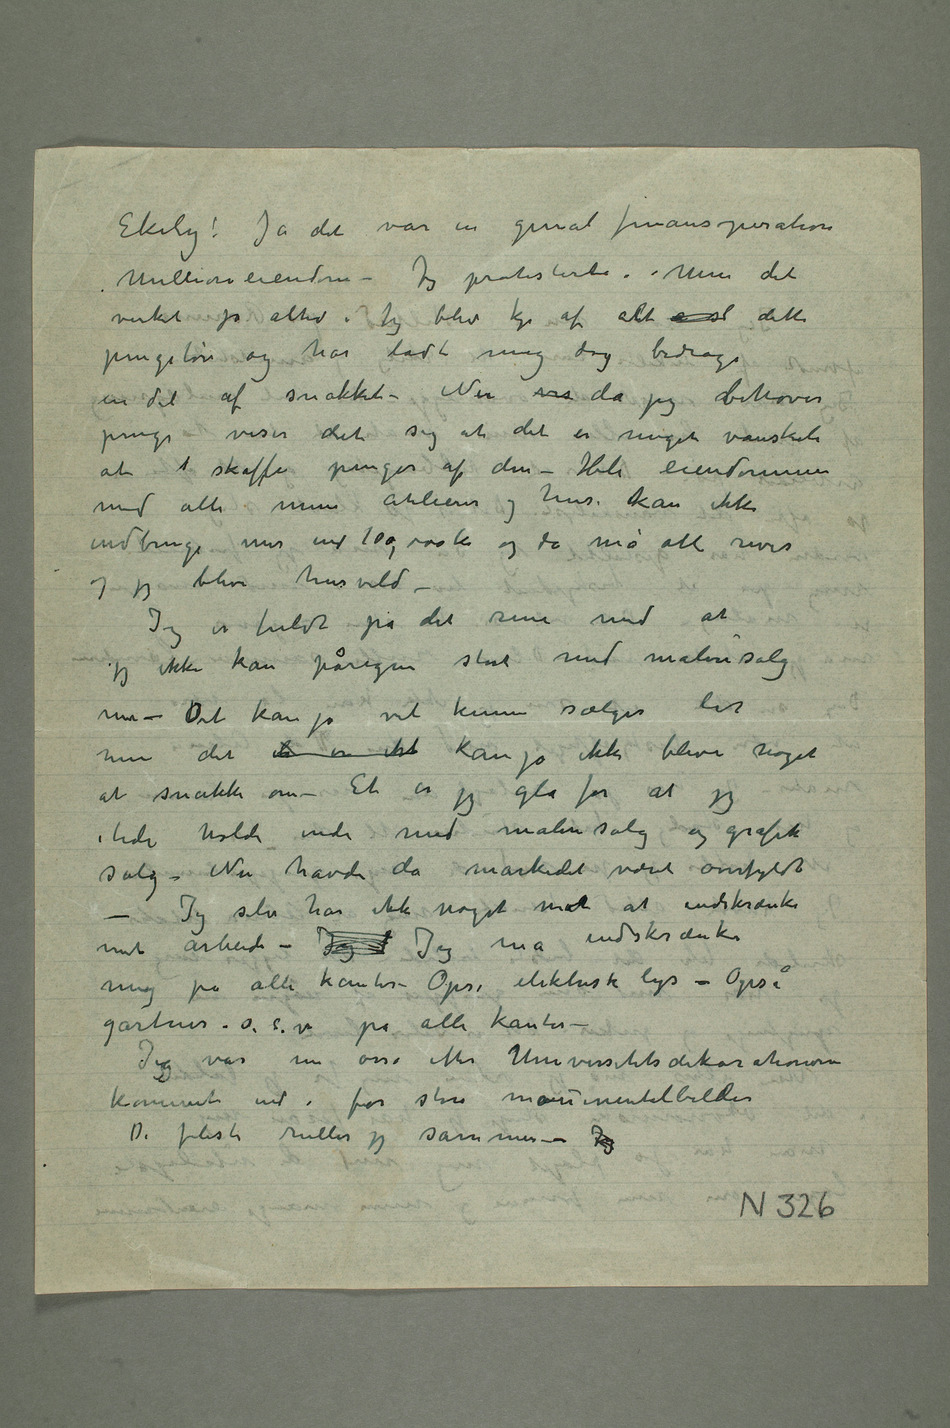 Ekely! Ja det var en genial finansoperation
Millioneiendom – Jeg protesterte. – Men det
virket jo altid i Jeg blev kje af alt dette
pengetøv og har ladt mig dog bedrage
en del af snakket – Nu da jeg behøver
penge viser det sig at det er meget vanskeli
at skaffe penger af den – Hele eiendommen
med alle mine atelierer og huse kan ikke
indbringe mer end 100,000 kr og da må alt rives
og jeg blive husvild –
Jeg er fuldt på det rene med at
jeg ikke kan påregne stort med malerisalg
mer – Det kan jo vel kunne sælges lidt
men det kan jo ikke blive noget
at snakke om – Et er jeg gla for at jeg
itide holdt inde med malerisalg og grafik
salg – Nu havde da markedet været overfyldt
– Jeg selv har ikke noget mot at indskrænke
mit arbeide – Jeg må indskrænke
mig på alle kanter – Også elektrisk lys – Også
gartner. o. s. v. på alle kanter –
Jeg var nu også efter Universitetsdekorationerne
kommet ind i for store monumentelbilleder
De fleste ruller jeg sammen – Jeg
N 326